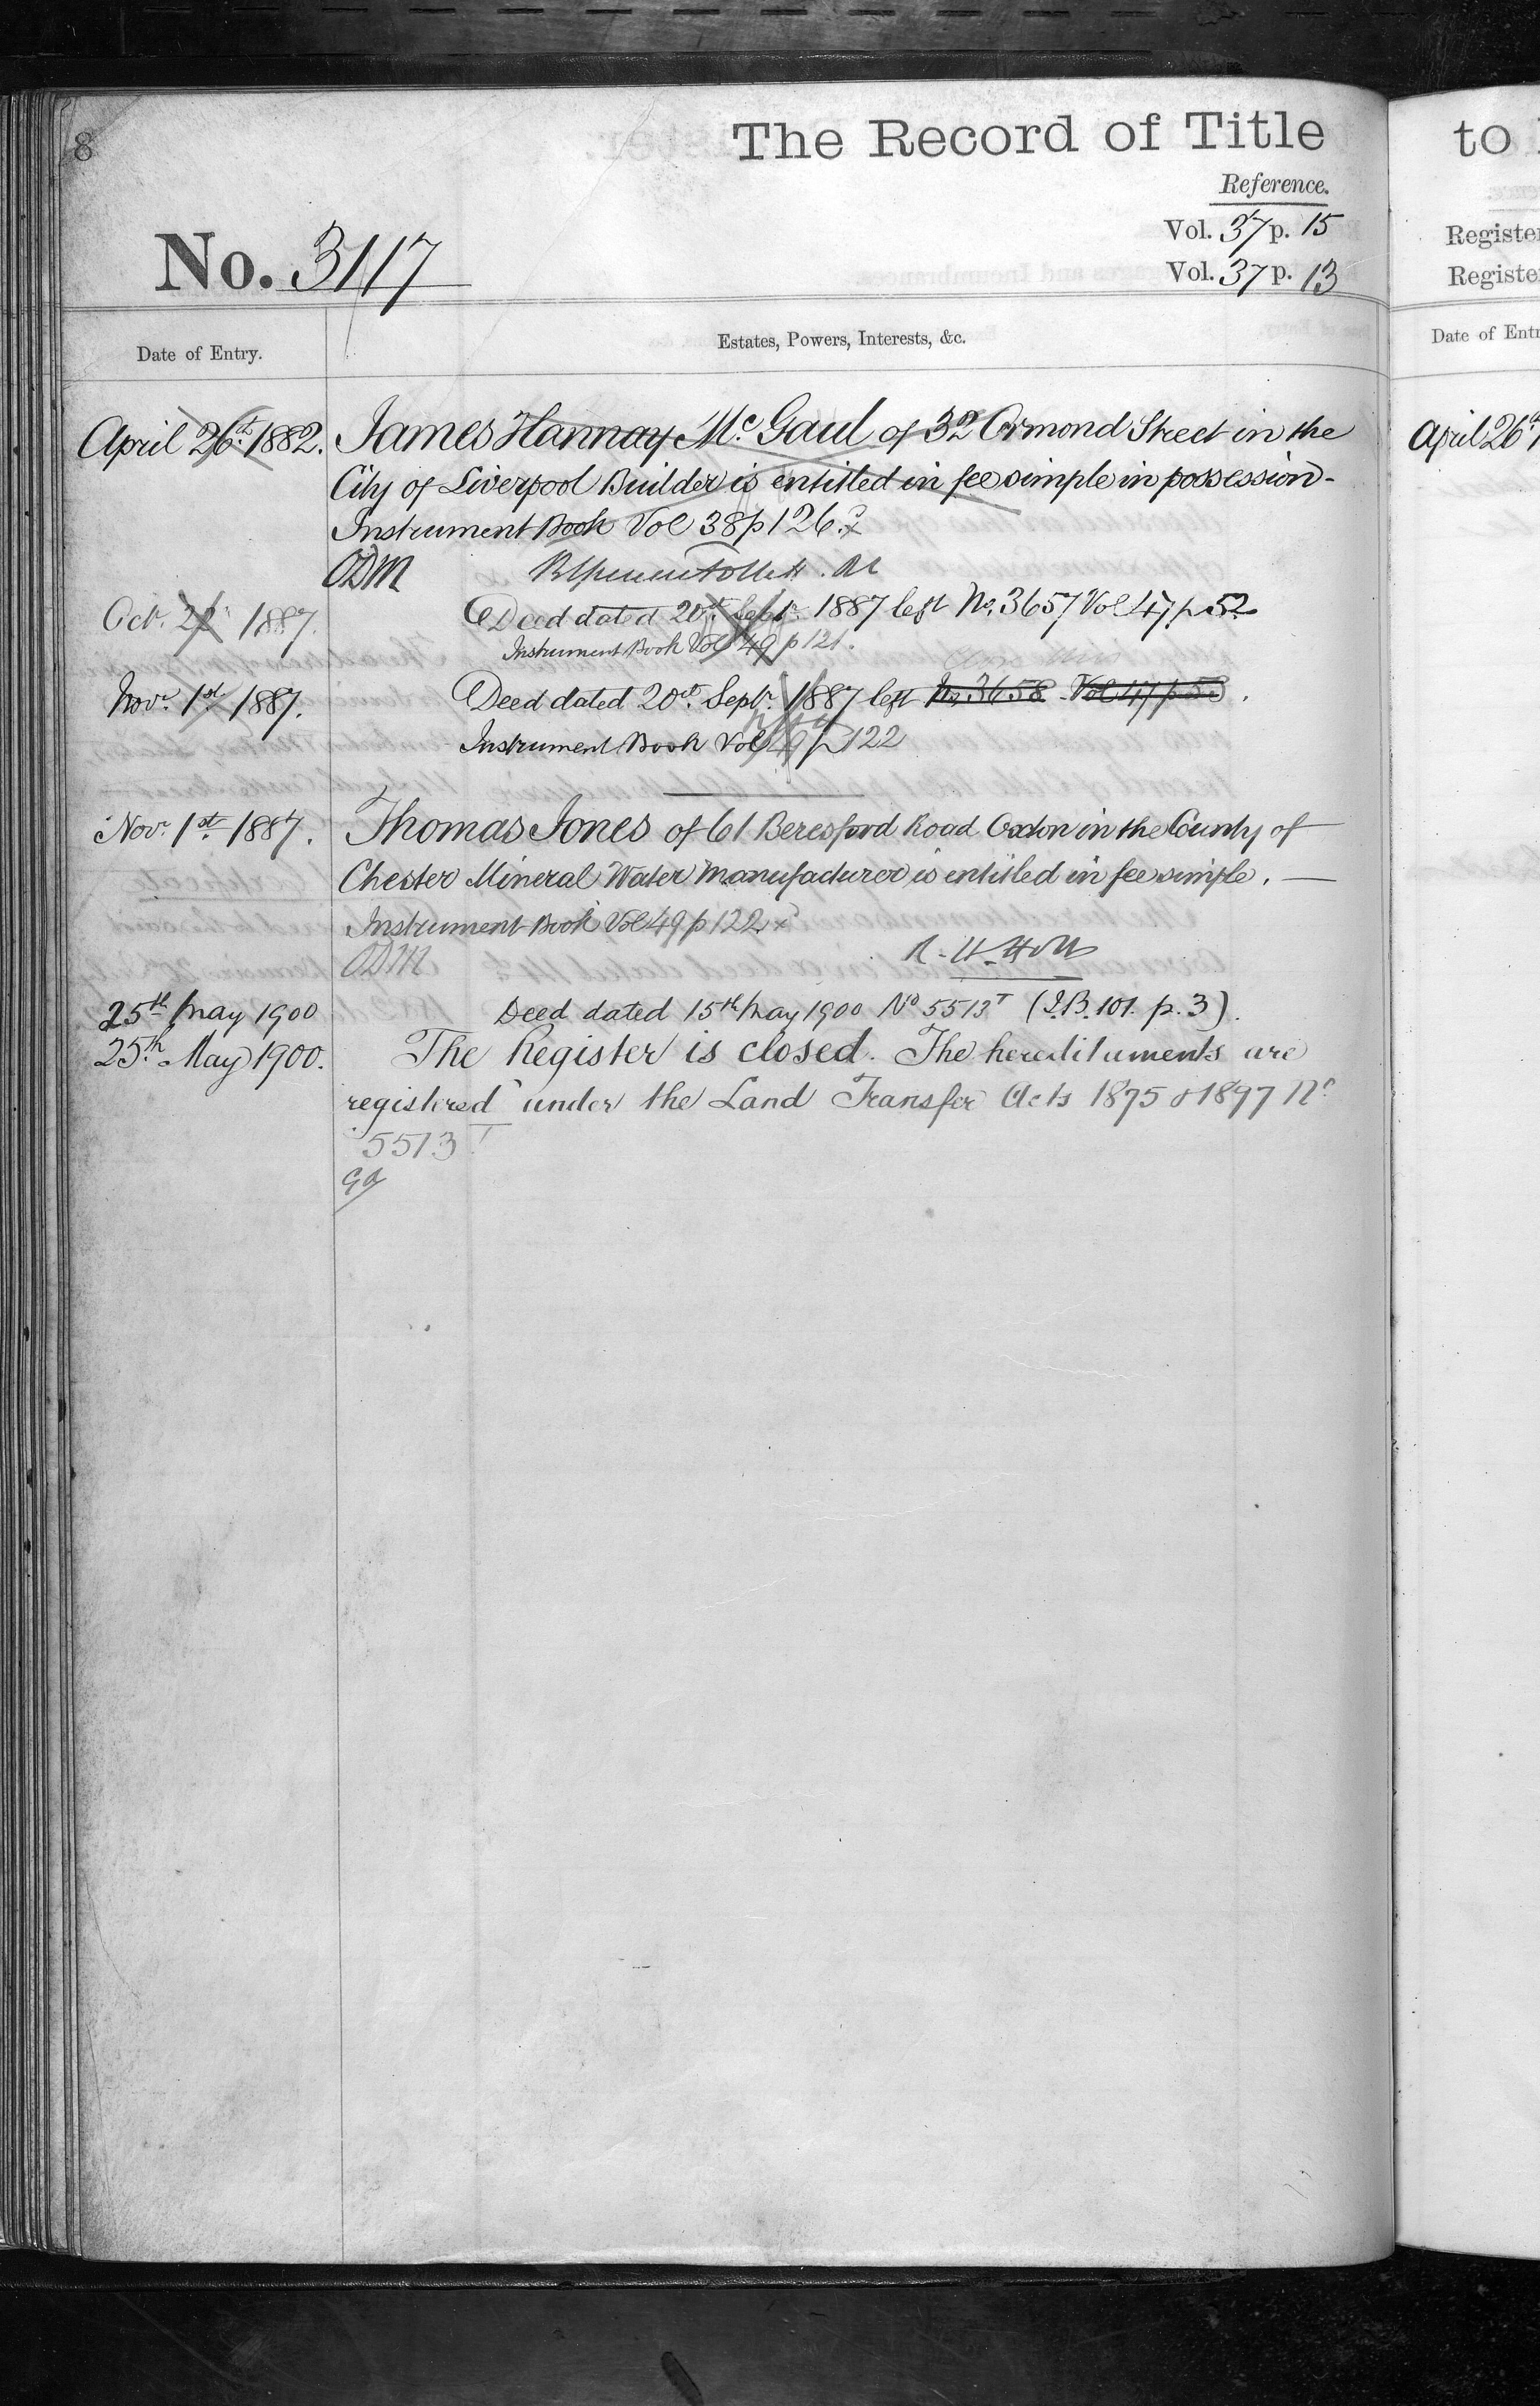 8
The Record of Title
Reference.
Vol. 37 p. 15
No. 3117
Vol. 37 p. 13
Date of Entry.
Estates, Powers, Interests, &c.
April 26th 1882. James Hannay McGaul of 32 Ormond Street in the
City of Liverpool Builder is entitled in fee simple in possession -
Instrument Book Vol 38 p 126.
ODM
Oct. 22 1887. Deed dated 20th Septr. 1887 left No. 3657 Vol 47 p 52
Instrument Book Vol 49 p 121.
Novr. 1st 1887. Deed dated 20th Septr. 1887 left No. 3658 Vol 47 p 53.
Instrument Book Vol 49 p 122
Novr. 1st 1887. Thomas Jones of 61 Beresford Road Oxton in the County of
Chester Mineral Water Manufacturer is entitled in fee simple. —
Instrument Book Vol 49 p 122
ODM
25th May 1900 Deed dated 15th May 1900 No 5513T (I.B. 101. p. 3).
25th May 1900. The Register is closed. The hereditaments are
registered under the Land Transfer Acts 1875 & 1897 No
5513T
GA
to
Register
Register
Date of Entr
April 26th